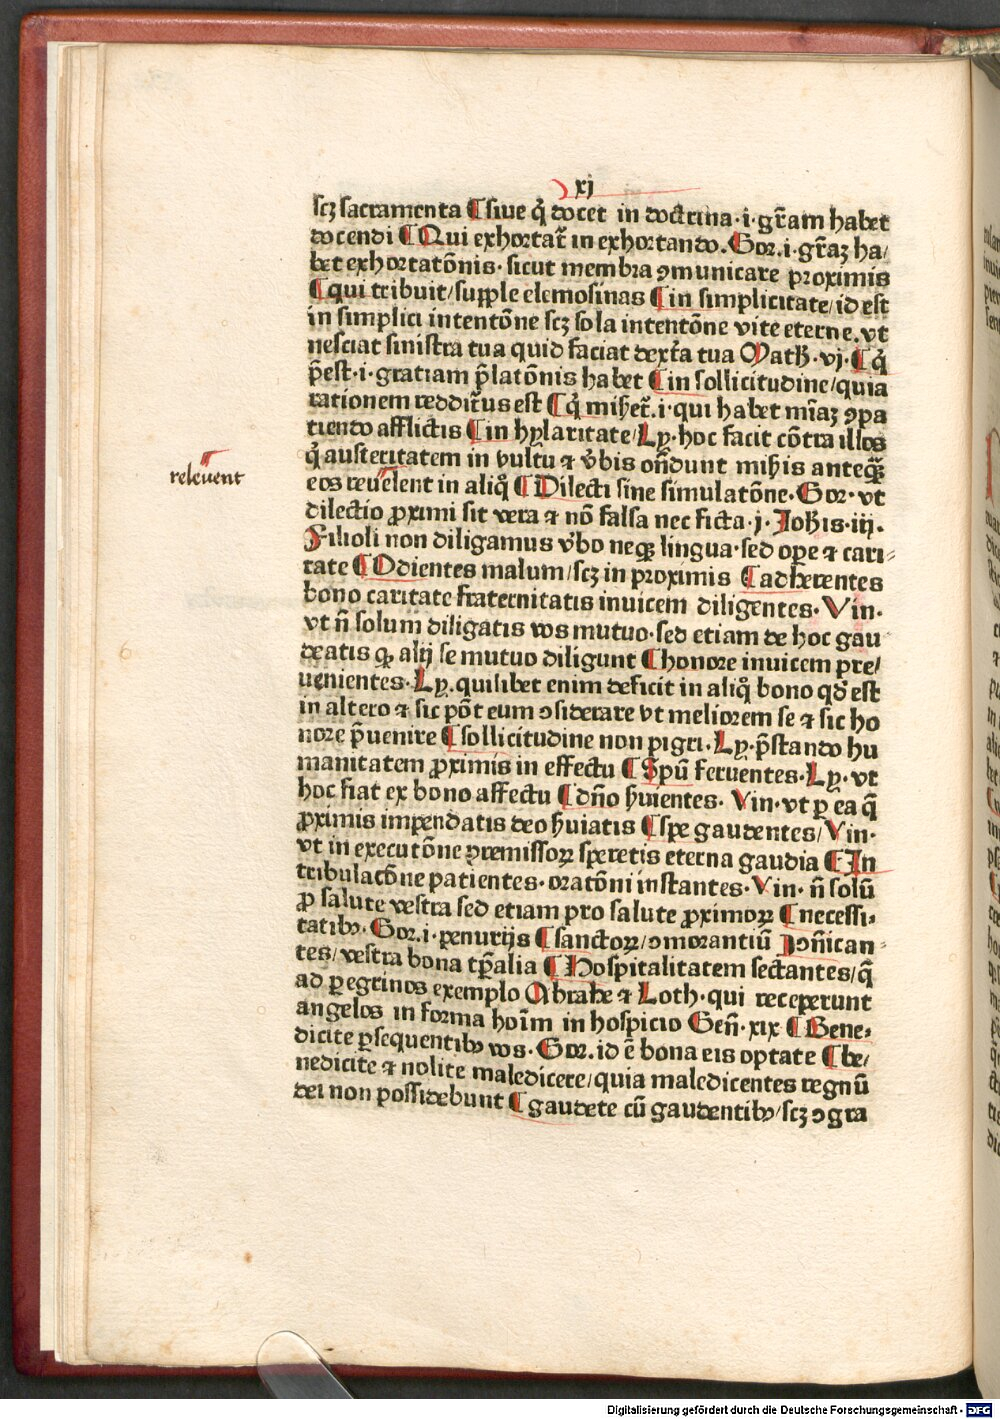 xj
scꝫ sacramenta ¶ siue q̇ docet in doctrina·i·gr̄am habet
docendi ¶ Qui exhortat᷑ in exhortando. Gor.i·gr̄aꝫ ha/
bet exhortatōnis· sicut membra ꝯmunicare proximis
¶ qui tribuit/supple elemosinas ¶ in simplicitate/id est
in simplici intentōne scꝫ sola intentōne vite eterne.vt
nesciat sinistra tua quid faciat dext̄a tua Math̄·vj·¶ q̇
p̄est·i·gratiam p̄latōnis habet ¶ in sollicitudine/quia
rationem reddit᷑us est ¶ q̇ miẜet᷑.i·qui habet mīaꝫ ꝯpa
tiendo afflictis ¶ in hylaritate/Ly·hoc facit cōtra illos
q̇ austeritatem in vultu ⁊ v̾bis on̄dunt miẜis anteqꝫ
relevent
eos reuelent in aliq̊ ¶ Dilecti sine simulatōne·Gor·vt
dilectio ꝓximi sit vera ⁊ nō falsa nec ficta·j·Joħis·iij·
Filioli non diligamus v̾bo neqꝫ lingua·sed oꝑe ⁊ cari-
tate ¶ Odientes malum/scꝫ in proximis ¶ adherentes
bono caritate fraternitatis inuicem diligentes·Vin·
vt n̄ solum diligatis vos mutuo·sed etiam de hoc gau
deatis qꝫ alij se mutuo diligunt ¶ honore inuicem pre/
uenientes·Ly.quilibet enim deficit in aliq̊ bono qd̓ est
in altero ⁊ sic pōt eum ꝯsiderare vt meliorem se ⁊ sic ho
nore p̄uenire ¶ sollicitudine non pigri·Ly·p̄stando hu
manitatem ꝓximis in effectu ¶ Spū feruentes·Ly·vt
hoc fiat ex bono affectu ¶ dn̄o ẜuientes· Vin·vt ꝑ ea q̄
ꝓximis impendatis deo ẜuiatis ¶ spe gaudentes/Vin·
vt in executōne ꝓremissoꝝ speretis eterna gaudia ¶ In
tribulacōne patientes·oratōni instantes·Vin·n̄ solū
ꝓ salute vestra sed etiam pro salute ꝓximoꝝ ¶ necessi-
tatibꝰ·Gor.i·penurijs ¶ sanctoꝝ/ꝯmorantiū ꝯm̄ican-
tes/vestra bona tp̄alia ¶ Hospitalitatem sectantes/q̄
ad ꝑegrinos exemplo Abrahe ⁊ Loth·qui receperunt
angelos in forma hoīm in hospicio Gen̄·xix ¶ Bene-
dicite ꝑsequentibꝰ vos·Gor.id ē bona eis optate ¶ be/
nedicite ⁊ nolite maledicere/quia maledicentes regnū
dei non possidebunt ¶ gaudete cū gaudentibꝰ/scꝫ ꝯgra